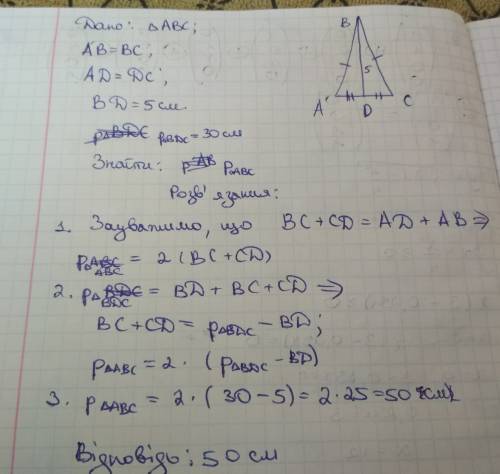 Дано: △ABC;
AB = BC;
AD = DC;
BD = 5 см.
P△BDC = 30 см
Знайти: P△ABC
Розв'язання:
1. Зауважимо, що BC + CD = AD + AB ⇒
P△ABC = 2 (BC + CD)
2. P△BDC = BD + BC + CD ⇒
BC + CD = P△BDC − BD;
P△ABC = 2 · (P△BDC − BD)
3. P△ABC = 2 · (30 − 5) = 2 · 25 = 50 (см)
Відповідь: 50 см
B
5
A
D
C